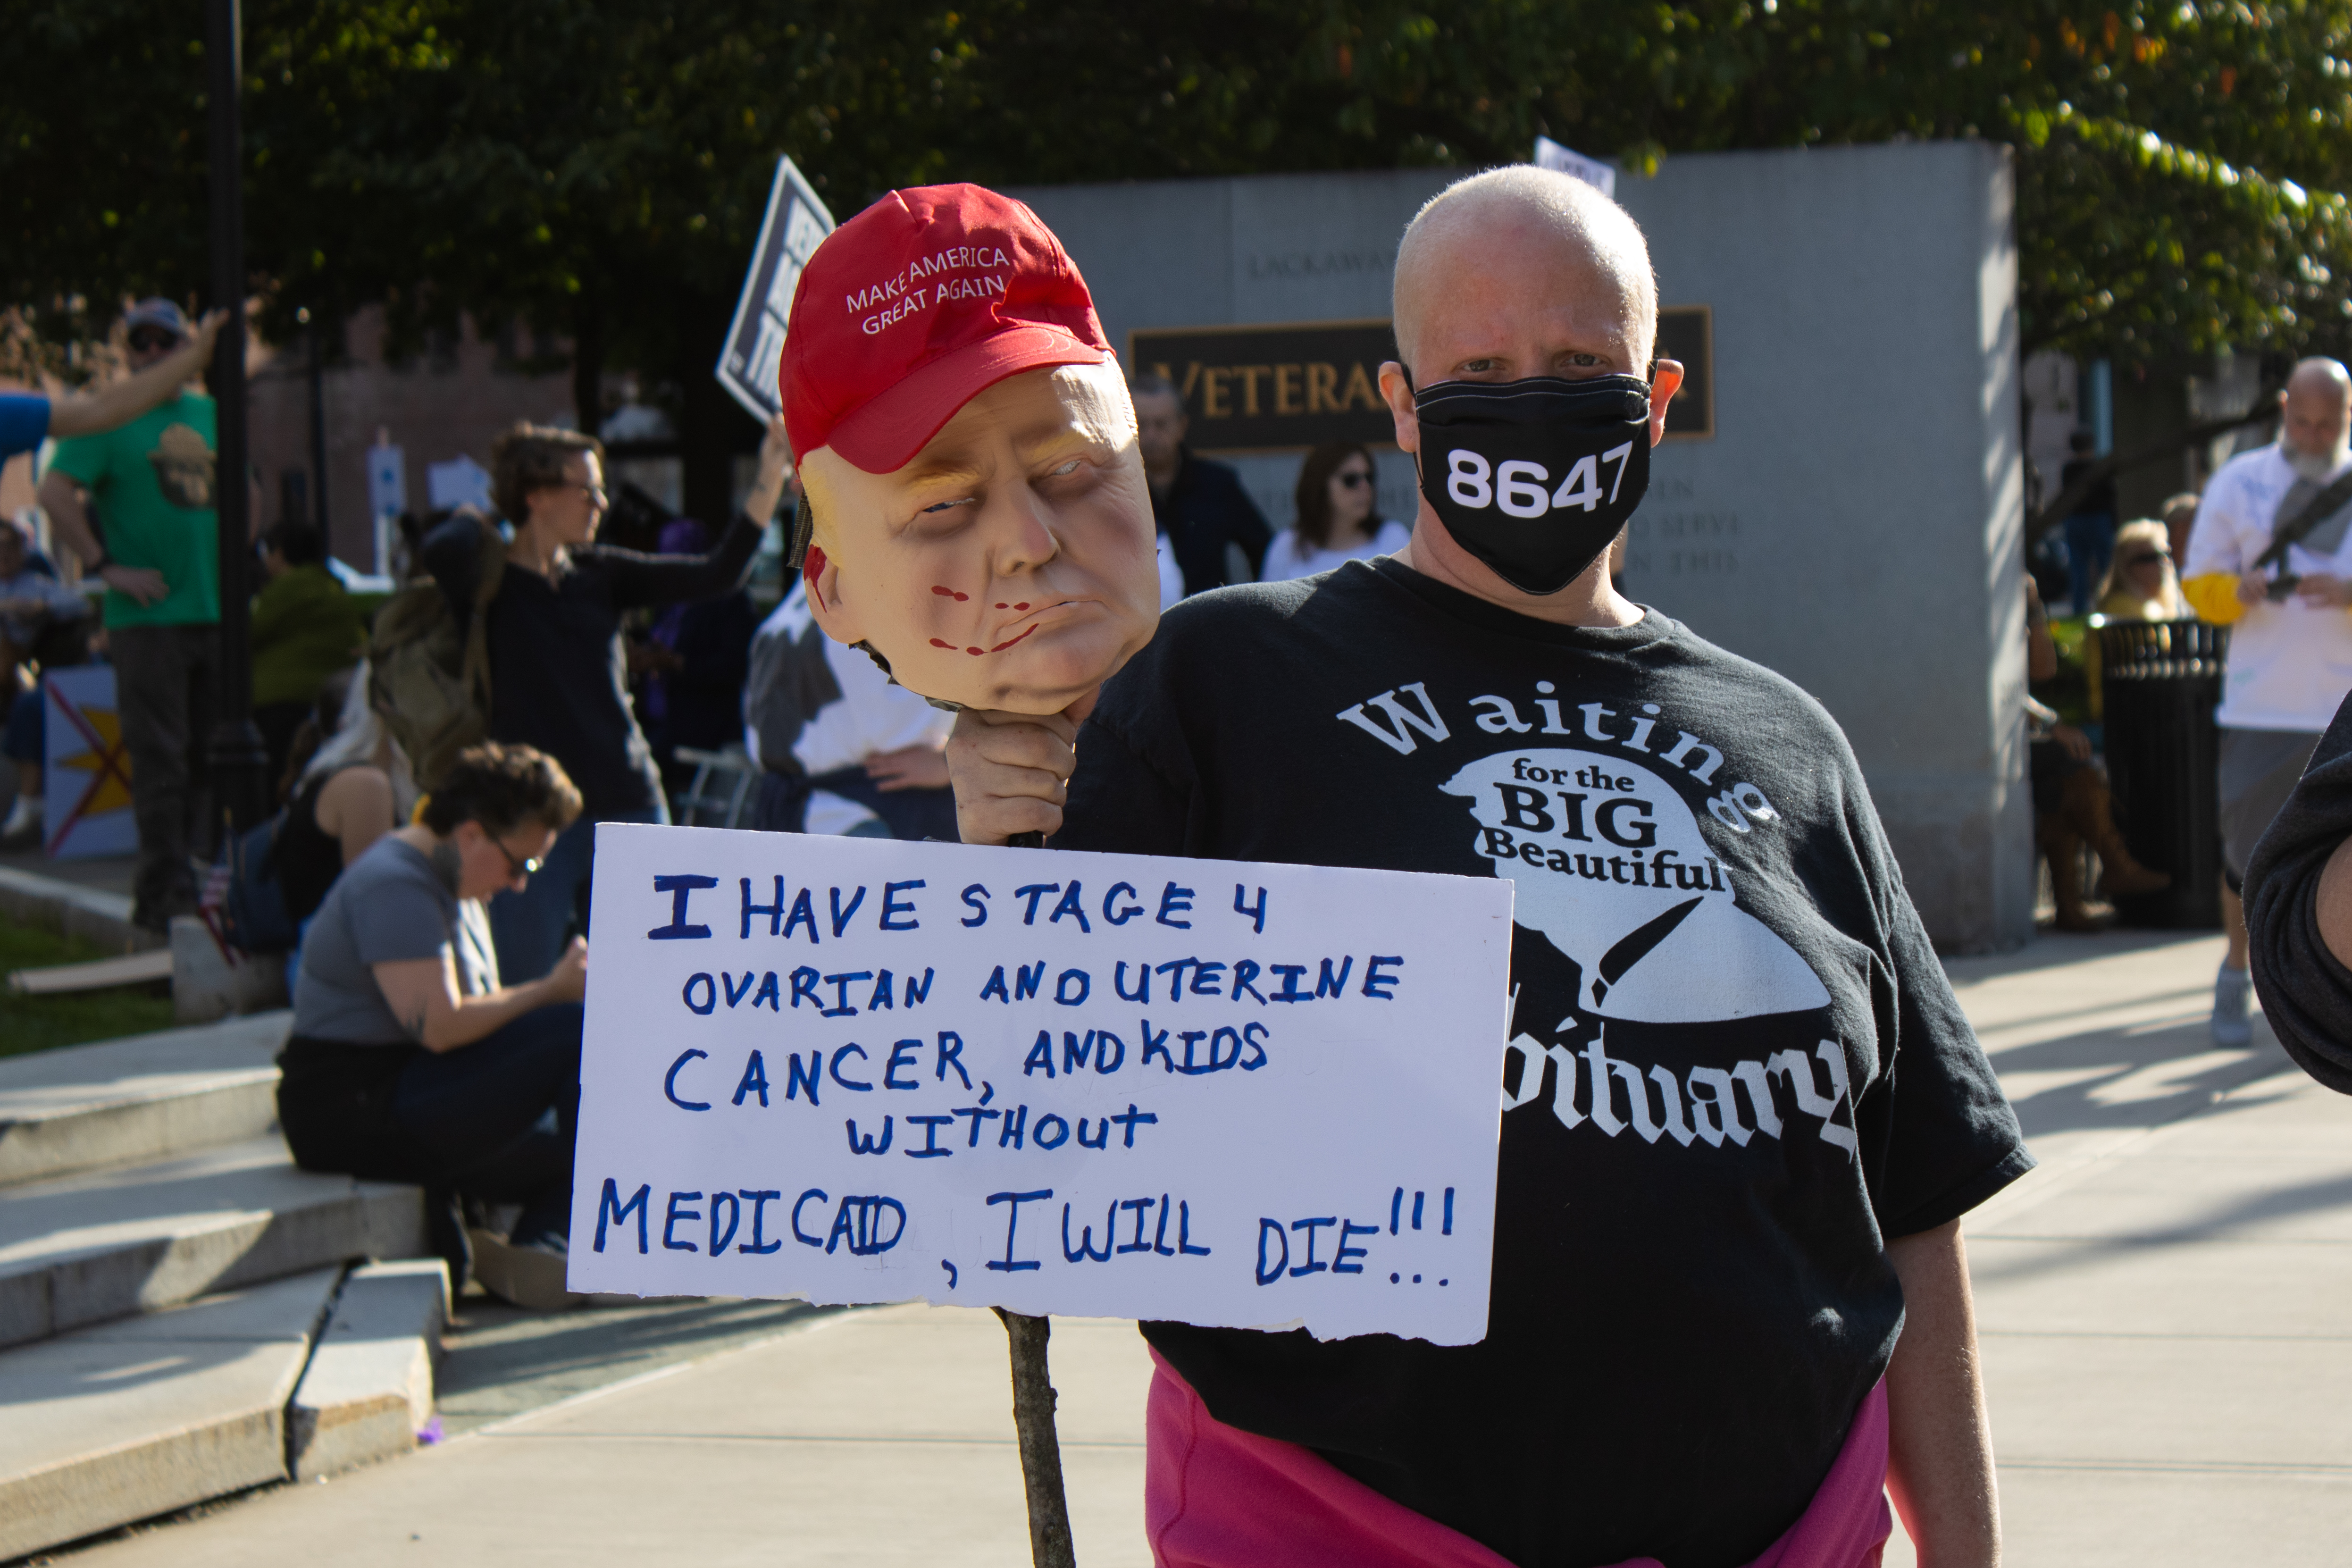 MAKE AMERICA
GREAT AGAIN
LACKAWA
VETERA
TO SERVE
N THIS
8647
Waiting
for the
BIG
Beautiful
bituary
I HAVE STAGE 4
OVARIAN AND UTERINE
CANCER, AND KIDS
WITHOUT
MEDICAID, I WILL DIE!!!